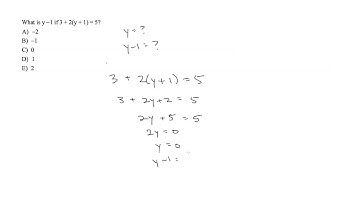 What is y − 1 if 3 + 2(y + 1) = 5?
A) −2
B) −1
C) 0
D) 1
E) 2
y = ?
y-1 = ?
3 + 2(y+1) = 5
3 + 2y+2 = 5
2y + 5 = 5
2y = 0
y = 0
y-1 =